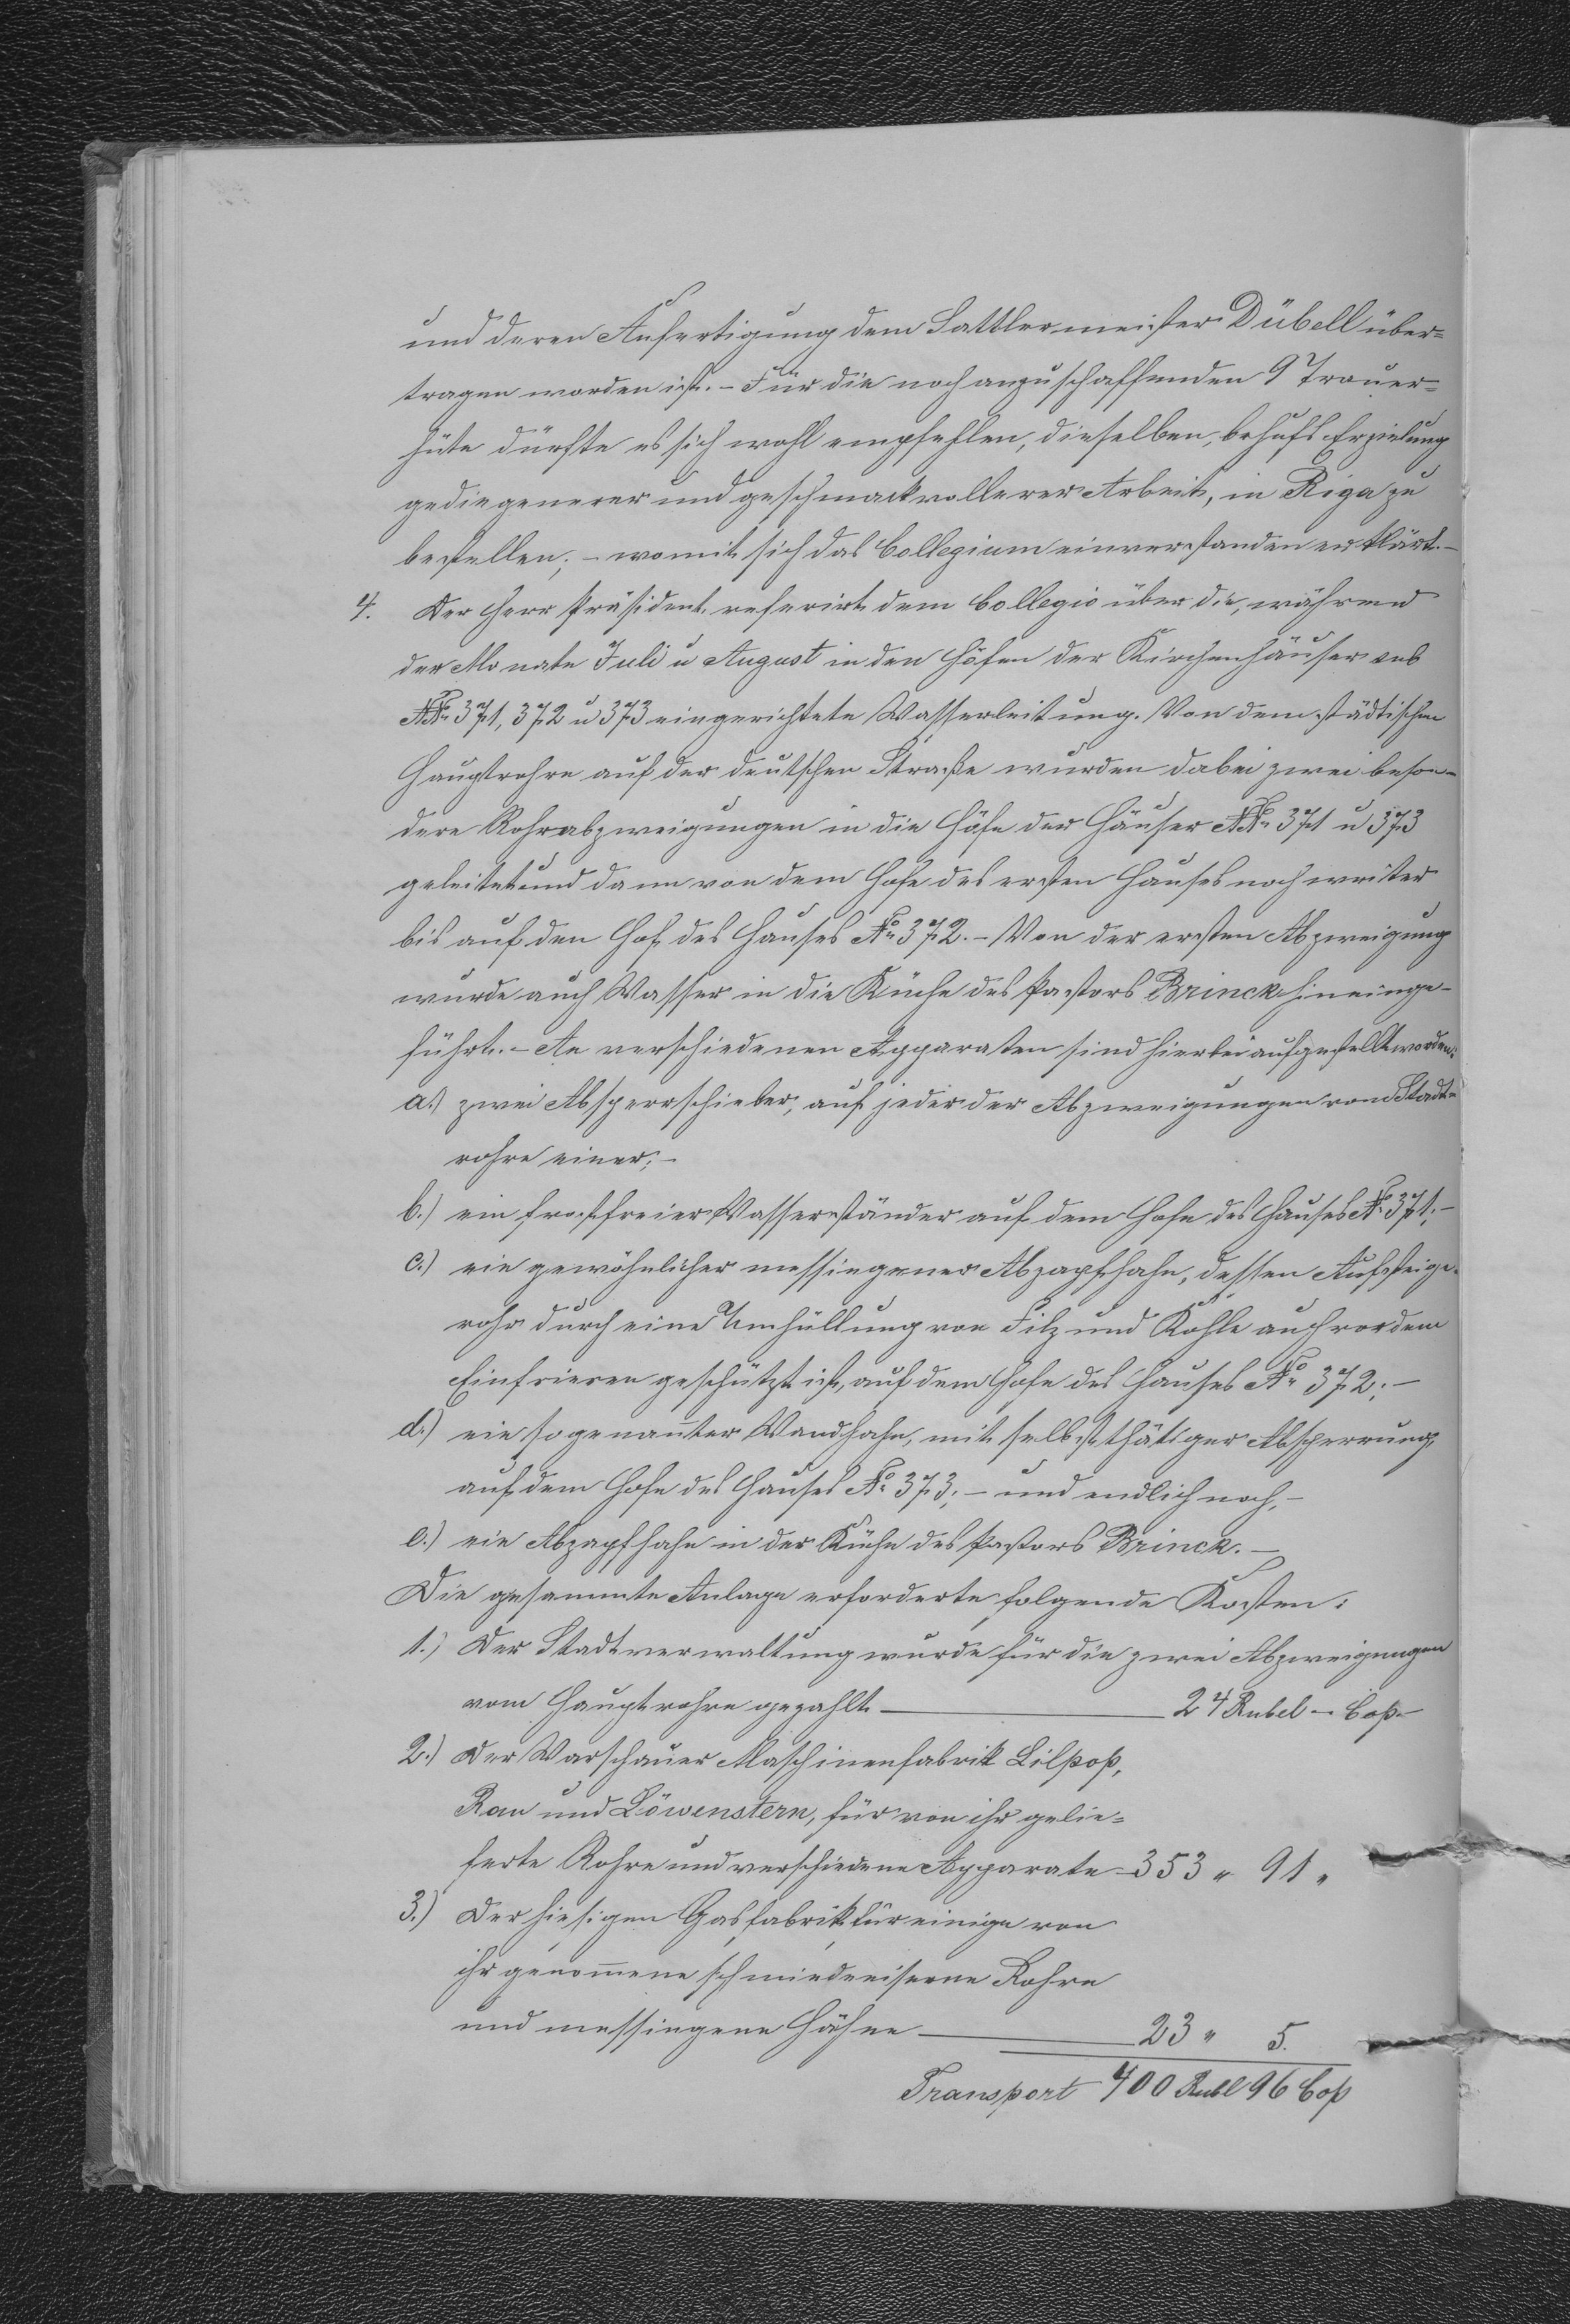 und deren Anfertigung dem Sattlermeister Dübell über=
tragen worden ist. – Für die noch anzuschaffenden 9 Trauer=
hüte dürfte es sich wohl empfehlen, dieselben, behufs Erzielung
gediegenerer und geschmackvollerer Arbeit, in Riga zu
bestellen; – womit sich das Collegium einverstanden erklärt. –
4. Der Herr Präsident referirt dem Collegio über die, während
der Monate Juli u August in den Höfen der Kirchenhäuser sub
NNo 371, 372 u 373 eingerichtete Wasserleitung. Von dem städtischen
Hauptrohre auf der deutschen Straße wurden dabei zwei beson-
dere Rohrabzweigungen in die Höfe der Häuser NNo 371 u 373
geleitet und dann von dem Hofe des ersten Hauses noch weiter
bis auf den Hof des Hauses No 372. – Von der ersten Abzweigung
wurde auch Wasser in die Küche des Pastors Brinck hineinge-
führt. – An verschiedenen Apparaten sind hierbei aufgestellt worden:
a.) zwei Absperrschieber, auf jeder der Abzweigungen vom Stadt=
rohre einer; –
b.) ein frostfreier Wasserständer auf dem Hofe des Hauses No 371; –
c.) ein gewöhnlicher messingener Abzapfhahn, dessen Aufsteige-
rohr durch eine Umhüllung von Filz und Kohle auch vor dem
Einfrieren geschützt ist, auf dem Hofe des Hauses No 372; –
d.) ein sogenannter Wandhahn, mit selbstthätiger Absperrung,
auf dem Hofe des Hauses No 373; – und endlich noch, –
e.) ein Abzapfhahn in der Küche des Pastors Brinck. –
Die gesammte Anlage erforderte folgende Kosten:
1.) Der Stadtverwaltung wurde für die zwei Abzweigungen
vom Hauptrohre gezahlt 24 Rubel – Cop. –
2.) Der Warschauer Maschinenfabrik Lilpop,
Rau und Löwenstern, für von ihr gelie=
ferte Rohre und verschiedene Apparate 353 " 91 "
3.) Der hiesigen Gasfabrik für einige von
ihr genommene schmiedeeiserne Rohre
und messingene Hähne 23 " 5.
Transport 400 Rubl 96 Cop